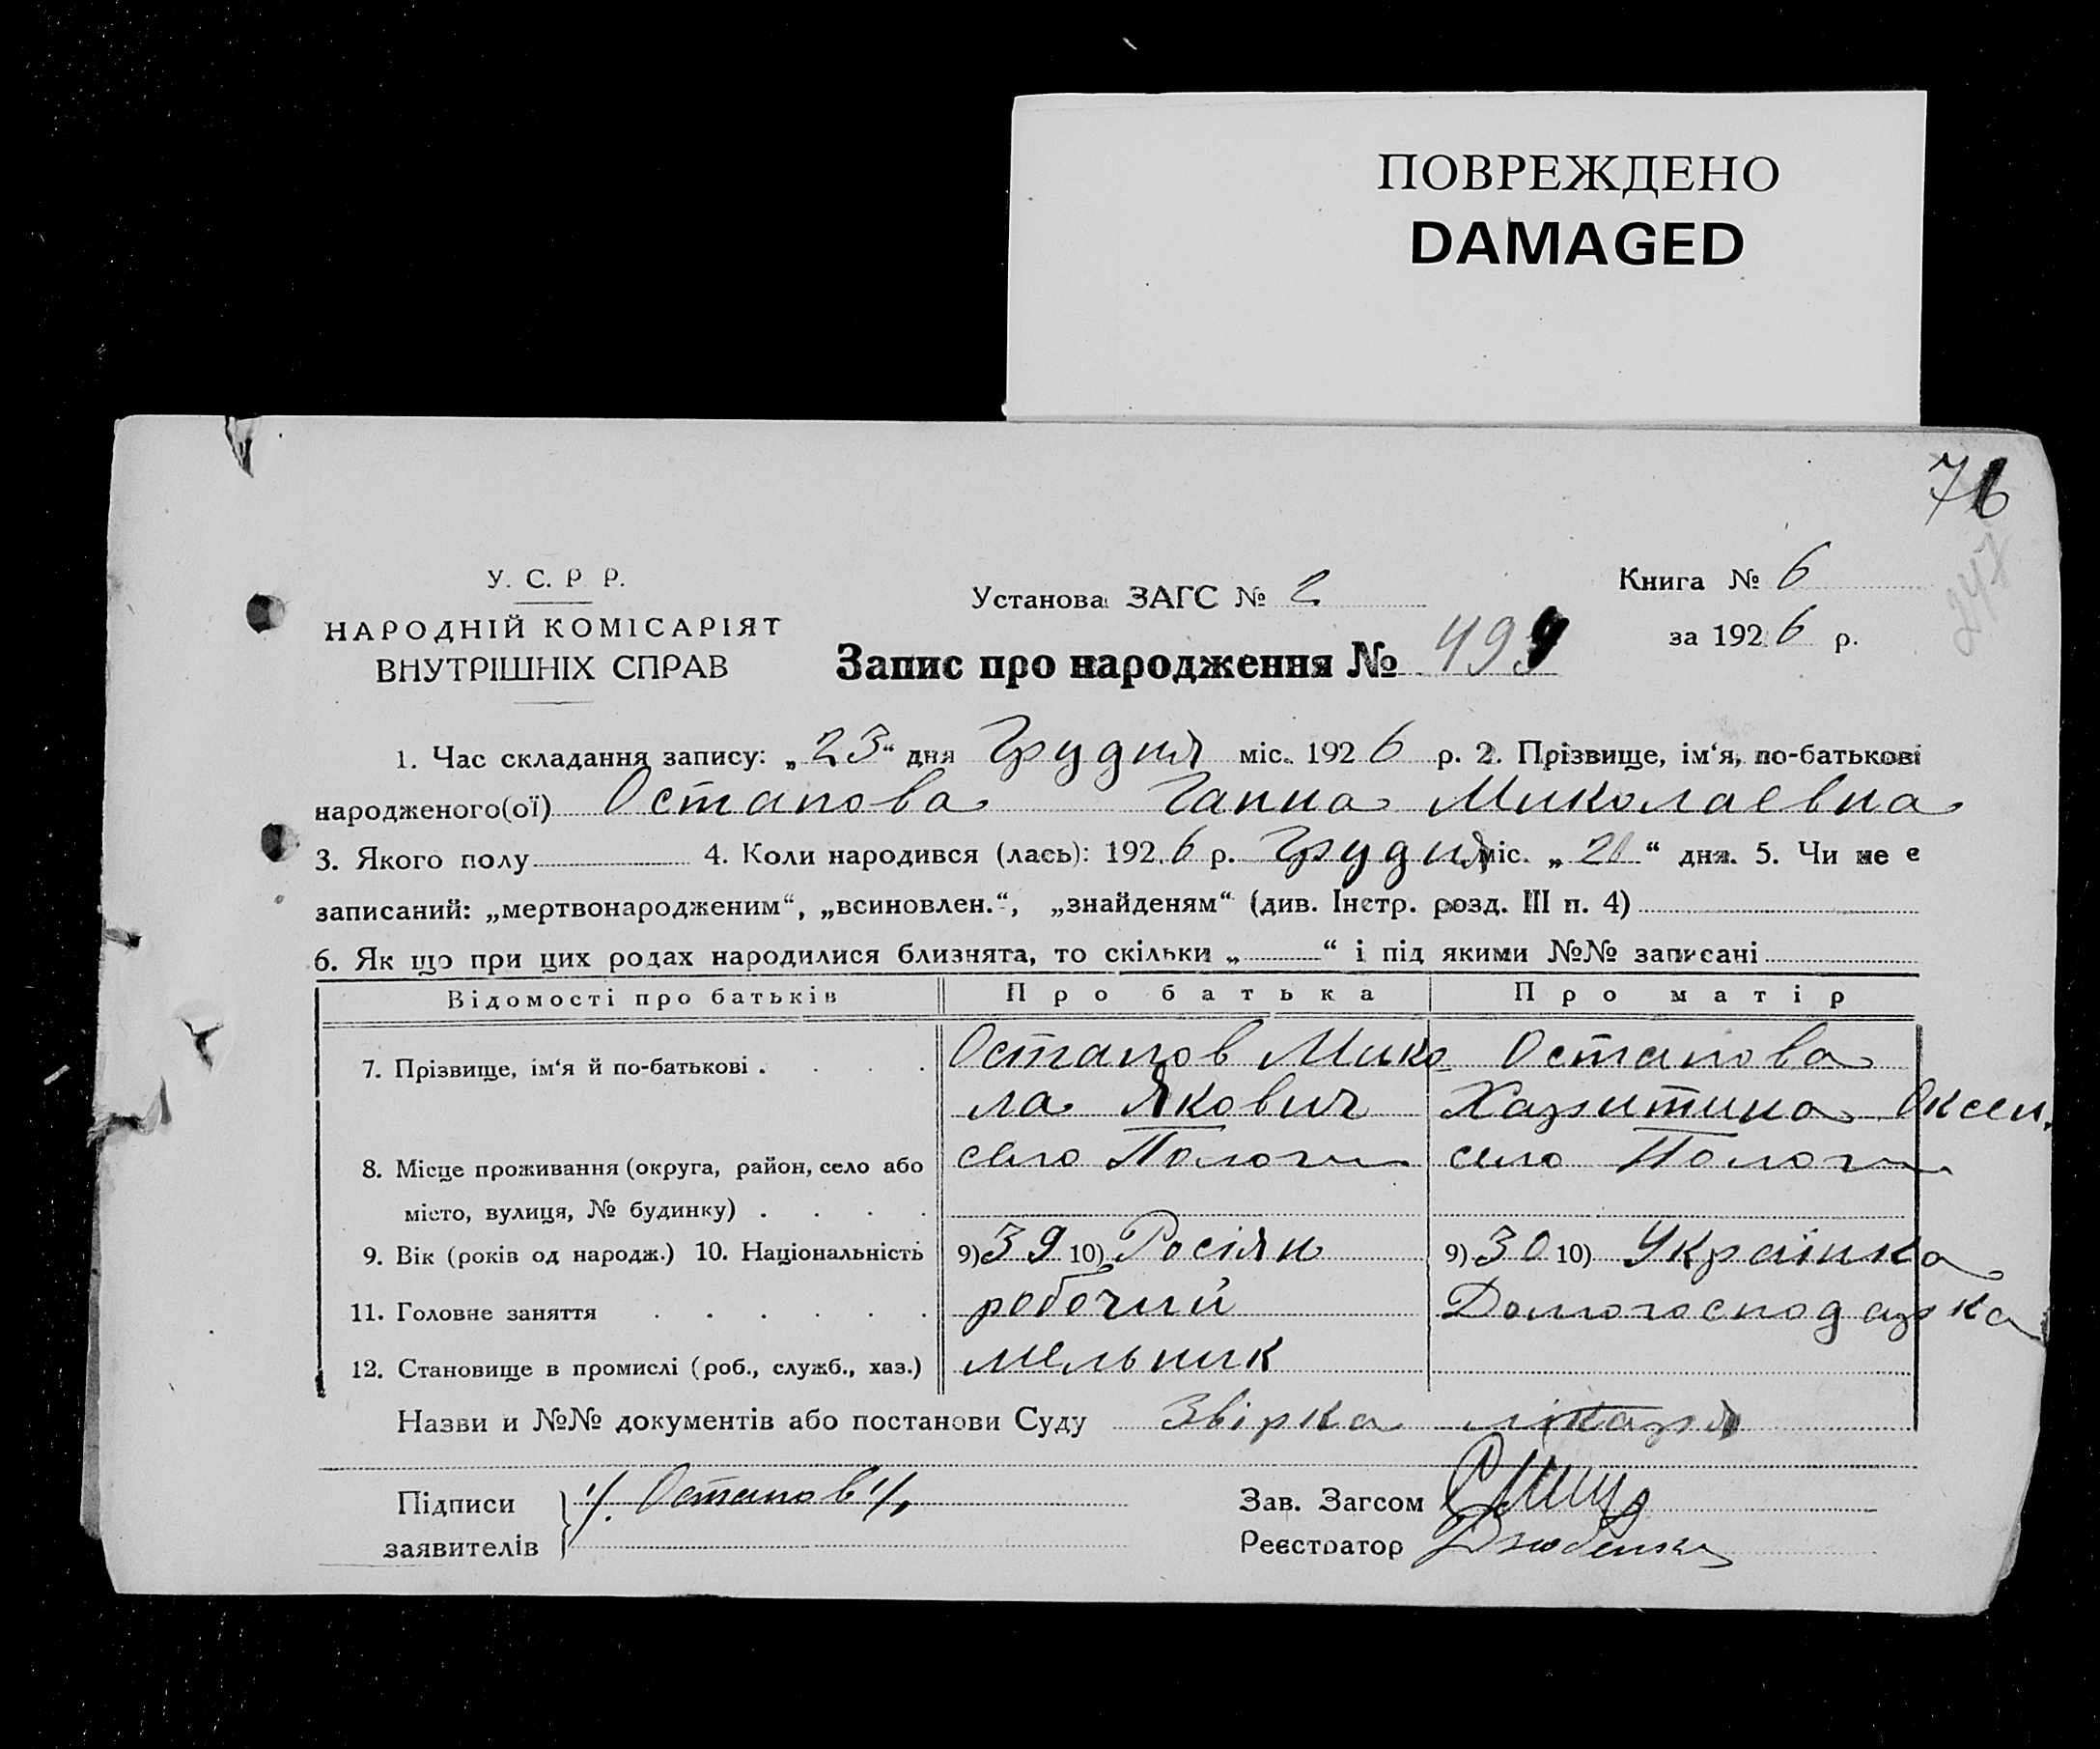 ПОВРЕЖДЕНО
DAMAGED
76
247
У. С. Р Р.
НАРОДНІЙ КОМІСАРІЯТ
ВНУТРІШНІХ СПРАВ
Установа ЗАГС № 2
Книга № 6
за 1926 р.
Запис про народження № 499
1. Час складання запису: „23“ дня Грудня міс. 1926 р. 2. Прізвище, ім‘я, по-батькові
народженого(ої) Остапова Ганна Миколаевна
3. Якого полу 4. Коли народився (лась): 1926 р. Грудня міс. „21“ дня. 5. Чи не є
записаний: „мертвонародженим“, „всиновлен.“, „знайденям“ (див. Інстр. розд. III п. 4)
6. Як що при цих родах народилися близнята, то скільки „ “ і під якими №№ записані
Відомості про батьків Про батька Про матір
7. Прізвище, ім‘я й по-батькові . . . . Остапов Мико Остапова
ла Якович Харитина Оксен.
8. Місце проживання (округа, район, село або село Пологи село Пологи
місто, вулиця, № будинку) . . . .
9. Вік (років од народж.) 10. Національність 9) 39 10) Росіян 9) 30 10) Українка
11. Головне заняття . . . . . . робочий Домогосподарка
12. Становище в промислі (роб., служб., хаз.) мельник
Назви и №№ документів або постанови Суду Звірка лікаря
Підписи Остапов Зав. Загсом
заявителів Реєстратор Дзюбенко